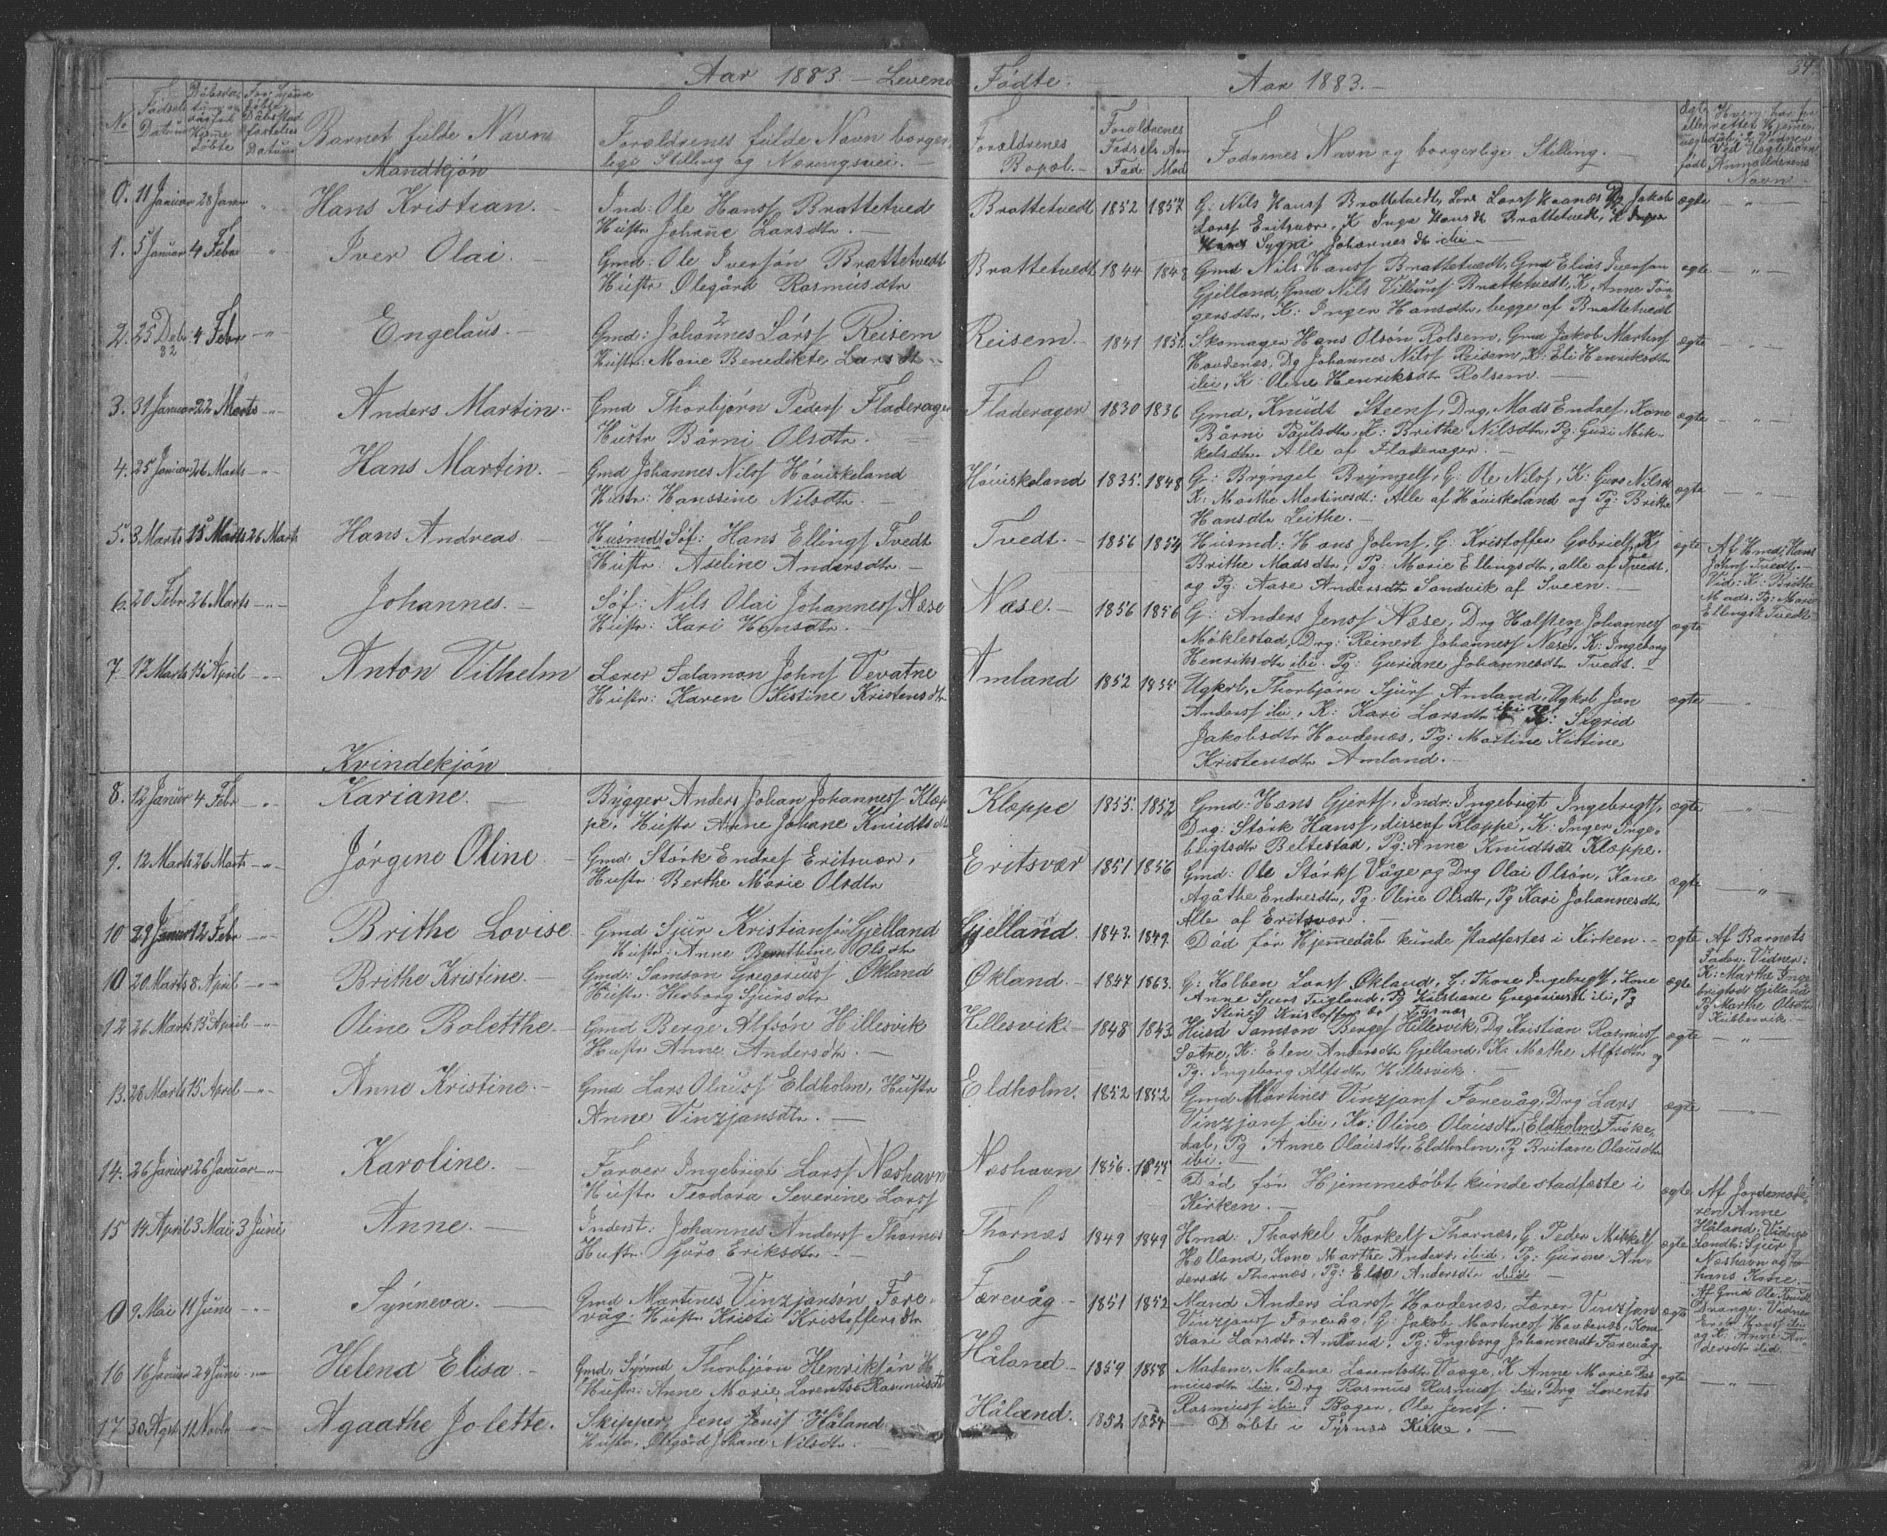 Aar 1883. — Levende Fødte. Aar 1883. —
34.
No
Fødsels Datum
Barnets fulde Navn
Forældrenes fulde Navn borger-
lige Stilling og Næringsvei. —
Forældrenes
Bopæl. —
Forældrenes
Fødsels Aar
Fad. Mod
Fadrenes Navn og borgerlige Stilling. —
Mandkjøn
0. 11 Januar 28 Januar " Hans Kristian. —
Ind: Ole Hansf Brattetved
Hustr Johane Larsdtr. —
Brattetvedt 1852 1857
G: Nils Hansf Brattetvedt, Lars Larsf Jakob
Larsf Eritsvær, K Inga Hansdt Brattetvedt,
Sygni Johannesdt ibi —
ægte — " —
1. 5 Januar 4 Febr " Iver Olai. —
Gmd: Ole Iversøn Brattetvedt
Hustr Olegård Rasmusdtr
Brattetvedt 1844 1848
Gmd Nils Hansf Brattetvedt, Gmd Elias Iversøn
Gjilland, Gmd Nils Villumsf Brattetvedt, K. Anne Tor-
gersdtr, K: Inger Hansdtr, begge af Brattetvedt
ægte — " —
2. 25 Debr 82 4 Febr — " Engelaus. —
Gmd: Johannes Larsf Reisem
Hustr: Marie Benedikte Larsdt —
Reisem. — 1841 1851
Skomager Hans Olsøn Rolsem, Gmd Jakob Martinsf
Hovdenæs, Dg Johannes Nilsf Reisem, K: Eli Henriksdtr
ibi, K: Oline Henriksdtr Rolsem —
ægte — " —
3. 31 Januar 22 Marts — " — Anders Martin. —
Gmd Thorbjørn Pedersf Fladerager
Hustr Bårni Olsdtr. —
Fladerager 1830 1836
Gmd, Knudt Steensf, Drg, Mads Endresf, Kone
Bårni Paulsdtr, K: Brithe Nilsdtr, Pg: Guri Mik-
kelsdtr. Alle af Fladerager. —
ægte "
4. 25 Januar 26 Marts — " — Hans Martin. —
Gmd Johannes Nilsf Høviskeland
Hustr: Hanssine Nilsdtr. —
Høviskeland 1835. 1848
G: Bryngel Bryngelsf, G: Ole Nilsf, K: Guro Nilsdt
K: Marthe Martinesdt: Alle af Høviskeland og Pg: Brithe
Hansdtr Leithe. —
ægte — " —
5. 3 Marts 15 Marts 26 Marts Hans Andreas. —
Husmd Søf: Hans Ellingsf Tvedt
Hustr: Aseline Andersdtr —
Tvedt. — 1856 1854
Husmd: Hans Johnsf, G: Kristoffer Gabrielsf, K
Brithe Madsdtr, Pg: Marie Ellingsdtr, alle af Tvedt,
og Pg: Aase Andersdtr Sandvik af Sveen. —
ægte
Af Hmd, Hans
Johnsf Tvedt. —
Vid: K: Brithe
Mads, Pg: Marie
Ellingsdt Tvedt
6. 20 Febr 26 Marts — " — Johannes. —
Søf: Nils Olai Johannesf Næse
Hustr: Kari Hansdtr. —
Næse. — 1856 1856
G: Anders Jensf Næse, Drg Halsten Johannesf
Møklestad, Drg: Reinert Johannesf Næse, K: Ingeborg
Henriksdtr ibi. Pg: Guriane Johannesdtr Tvedt. —
ægte
7 17 Marts 15 April — " — Anton Vilhelm
Lærer Salamon Johnsf Vevatne
Hustr: Karen Kistine Kristensdtr
Amland 1852 1855
Ugkrl, Thorbjørn Sjursf Amland, Ugkrl Jan
Andersf ibi, K: Kari Larsdtr ibi K: Sigrid
Jakobsdtr Hovdenæs, Pg: Martine Kistine
Kristensdtr Amland. —
ægte "
Kvindekjøn
8. 12 Januar 4 Febr " Kariane. —
Bygger Anders Johan Johannesf Klæp-
pe. Hustr Anne Johane Knudtsdt
Kloppe 1855. 1852
Gmd: Hans Gjertsf, Indr: Ingebrigt Ingebrigtsf,
Drg: Størk Hansf, disseraf Kloppe, K: Inger Inge-
brigtsdtr Beltestad, Pg: Anne Knudtsdt Kloppe.
ægte — " —
9. 12 Marts 26 Marts — " — Jørgine Oline —
Gmd Størk Endresf Eritsvær,
Hustr Berthe Marie Olsdtr
Eritsvær 1851 1856
Gmd: Ole Størksf Våge og Drg Olai Olsøn, Kone
Agåthe Endresdtr, Pg: Oline Olsdtr, Pg Kari Johannesdtr
Alle af Eritsvær. —
ægte — " —
10 29 Januar 12 Febr — " — Brithe Lovise
Gmd Sjur Kristiansøn Gjelland
Hustr: Anne Olsdtr
Gjelland. 1843. 1849.
Død før Hjemedåb kunde stadfestes i Kirken. —
ægte
Af Barnets
Fader. Vidner:
K: Marthe Inge-
brigtsdt Gjelland
Pg Marthe Olsdtr
Kubbervik. —
10 20 Marts 8 April — " — Brithe Kristine. —
Gmd: Samson Gregoriusf Økland
Hustr: Herborg Sjursdtr
Økland. 1847 1863.
G: Kolben Larsf Økland, G: Thore Ingebrigtsf, Kone
Anne Sjurs Tveland, Pg Kristiane Gregoriusdt ibi, Pg
Stine Kristoffersdt Tysnæs
ægte
12 26 Marts 15 April — " Oline Boletthe —
Gmd Berge Alfsøn Hillesvik
Hustr Anne Andersdtr. —
Hillesvik. 1848 1843.
Husd Samson Bergesf Hillesvik, Dg Kristian Rasmusf
Sætre, K: Elen Andersdtr Gjelland, K: Mathe Alfsdtr og
Pg. Ingeborg Alfsdtr Hillesvik. —
ægte — " —
13. 28 Marts 15 April — " — Anne Kristine. —
Gmd Lars Olausf Eldholm, Hustr
Anne Vinzjansdtr. —
Eldholm. 1852 1852
Gmd Martines Vinzjansf Færevåg, Drg Lars
Vinzjansf ibi, K: Oline Olausdtr Eldholm
Pg Anne Olausdtr Eldholm, Pg Britane Olausdtr
ibi. —
ægte — " —
14. 26 Januar 26 Januar — " — Karoline. —
Farver Ingebrigt Larsf Næshavn
Hustr Teodora Severine Larsf
Næshavn 1856. 1855
Død før Hjemmedøbt kunde stadfæste i
Kirken. —
ægte
Af Jordemode-
ren Anne
Håland, Vidner
Landh: Sjur
Næshavn og Jo-
hans Kone. —
15 14 April 3 Mai 3 Juni Anne. —
Inderst: Johannes Andersf Thornæs
Hustr Guro Eriksdtr. —
Thornæs 1849 1849
Hmd: Thorkel Thorkelsf Thornæs, G Peder Mikkelsf
Hælland, Kone Marthe Anders ibid, Pg: Gurine An-
dersdtr Thornæs, Pg: Else Andersdtr ibid —
ægte
Af Gmd Ole Knudt
Drange. Vidner
Erik Hansf ibi
og K: Anne An-
dersdtr ibid.
0 9 Mai 11 June — " — Synneva. —
Gmd Martines Vinzjansøn Fære-
våg. Hustr Kristi Kristoffersdtr
Færevåg — 1851 1852
Mand Anders Larsf Hovdenæs, Lærer Vinzjans
Vinzjansf Færevåg, G: Jakob Martinesf Hovdenæs, Kone
Kari Larsdtr Amland, Pg: Ingeborg Johannesdt Færevåg.
ægte
16 16 Januar 24 June — " — Helena Elisa. —
Gmd, Symd Thorbjørn Henriksøn H
Hustr: Anne Marie Lorents Rasmusdtr
Håland — 1859 1858
Madam, Malene Lorentsdtr Vaage, K Anne Marie Ras-
musdtr ibi, Drg Rasmus Rasmusf ibi, Drg Lorents
Rasmusf ibi, Bager, Ole Jensf. —
ægte — " —
17 30 Agst 12 Novb " Agaathe Jolette.
Skipper, Jens Jensf Håland
Hustr, Olegård Johane Nilsdtr. —
Håland. 1852 1854
— Døbte i Tysnæs Kirke. —